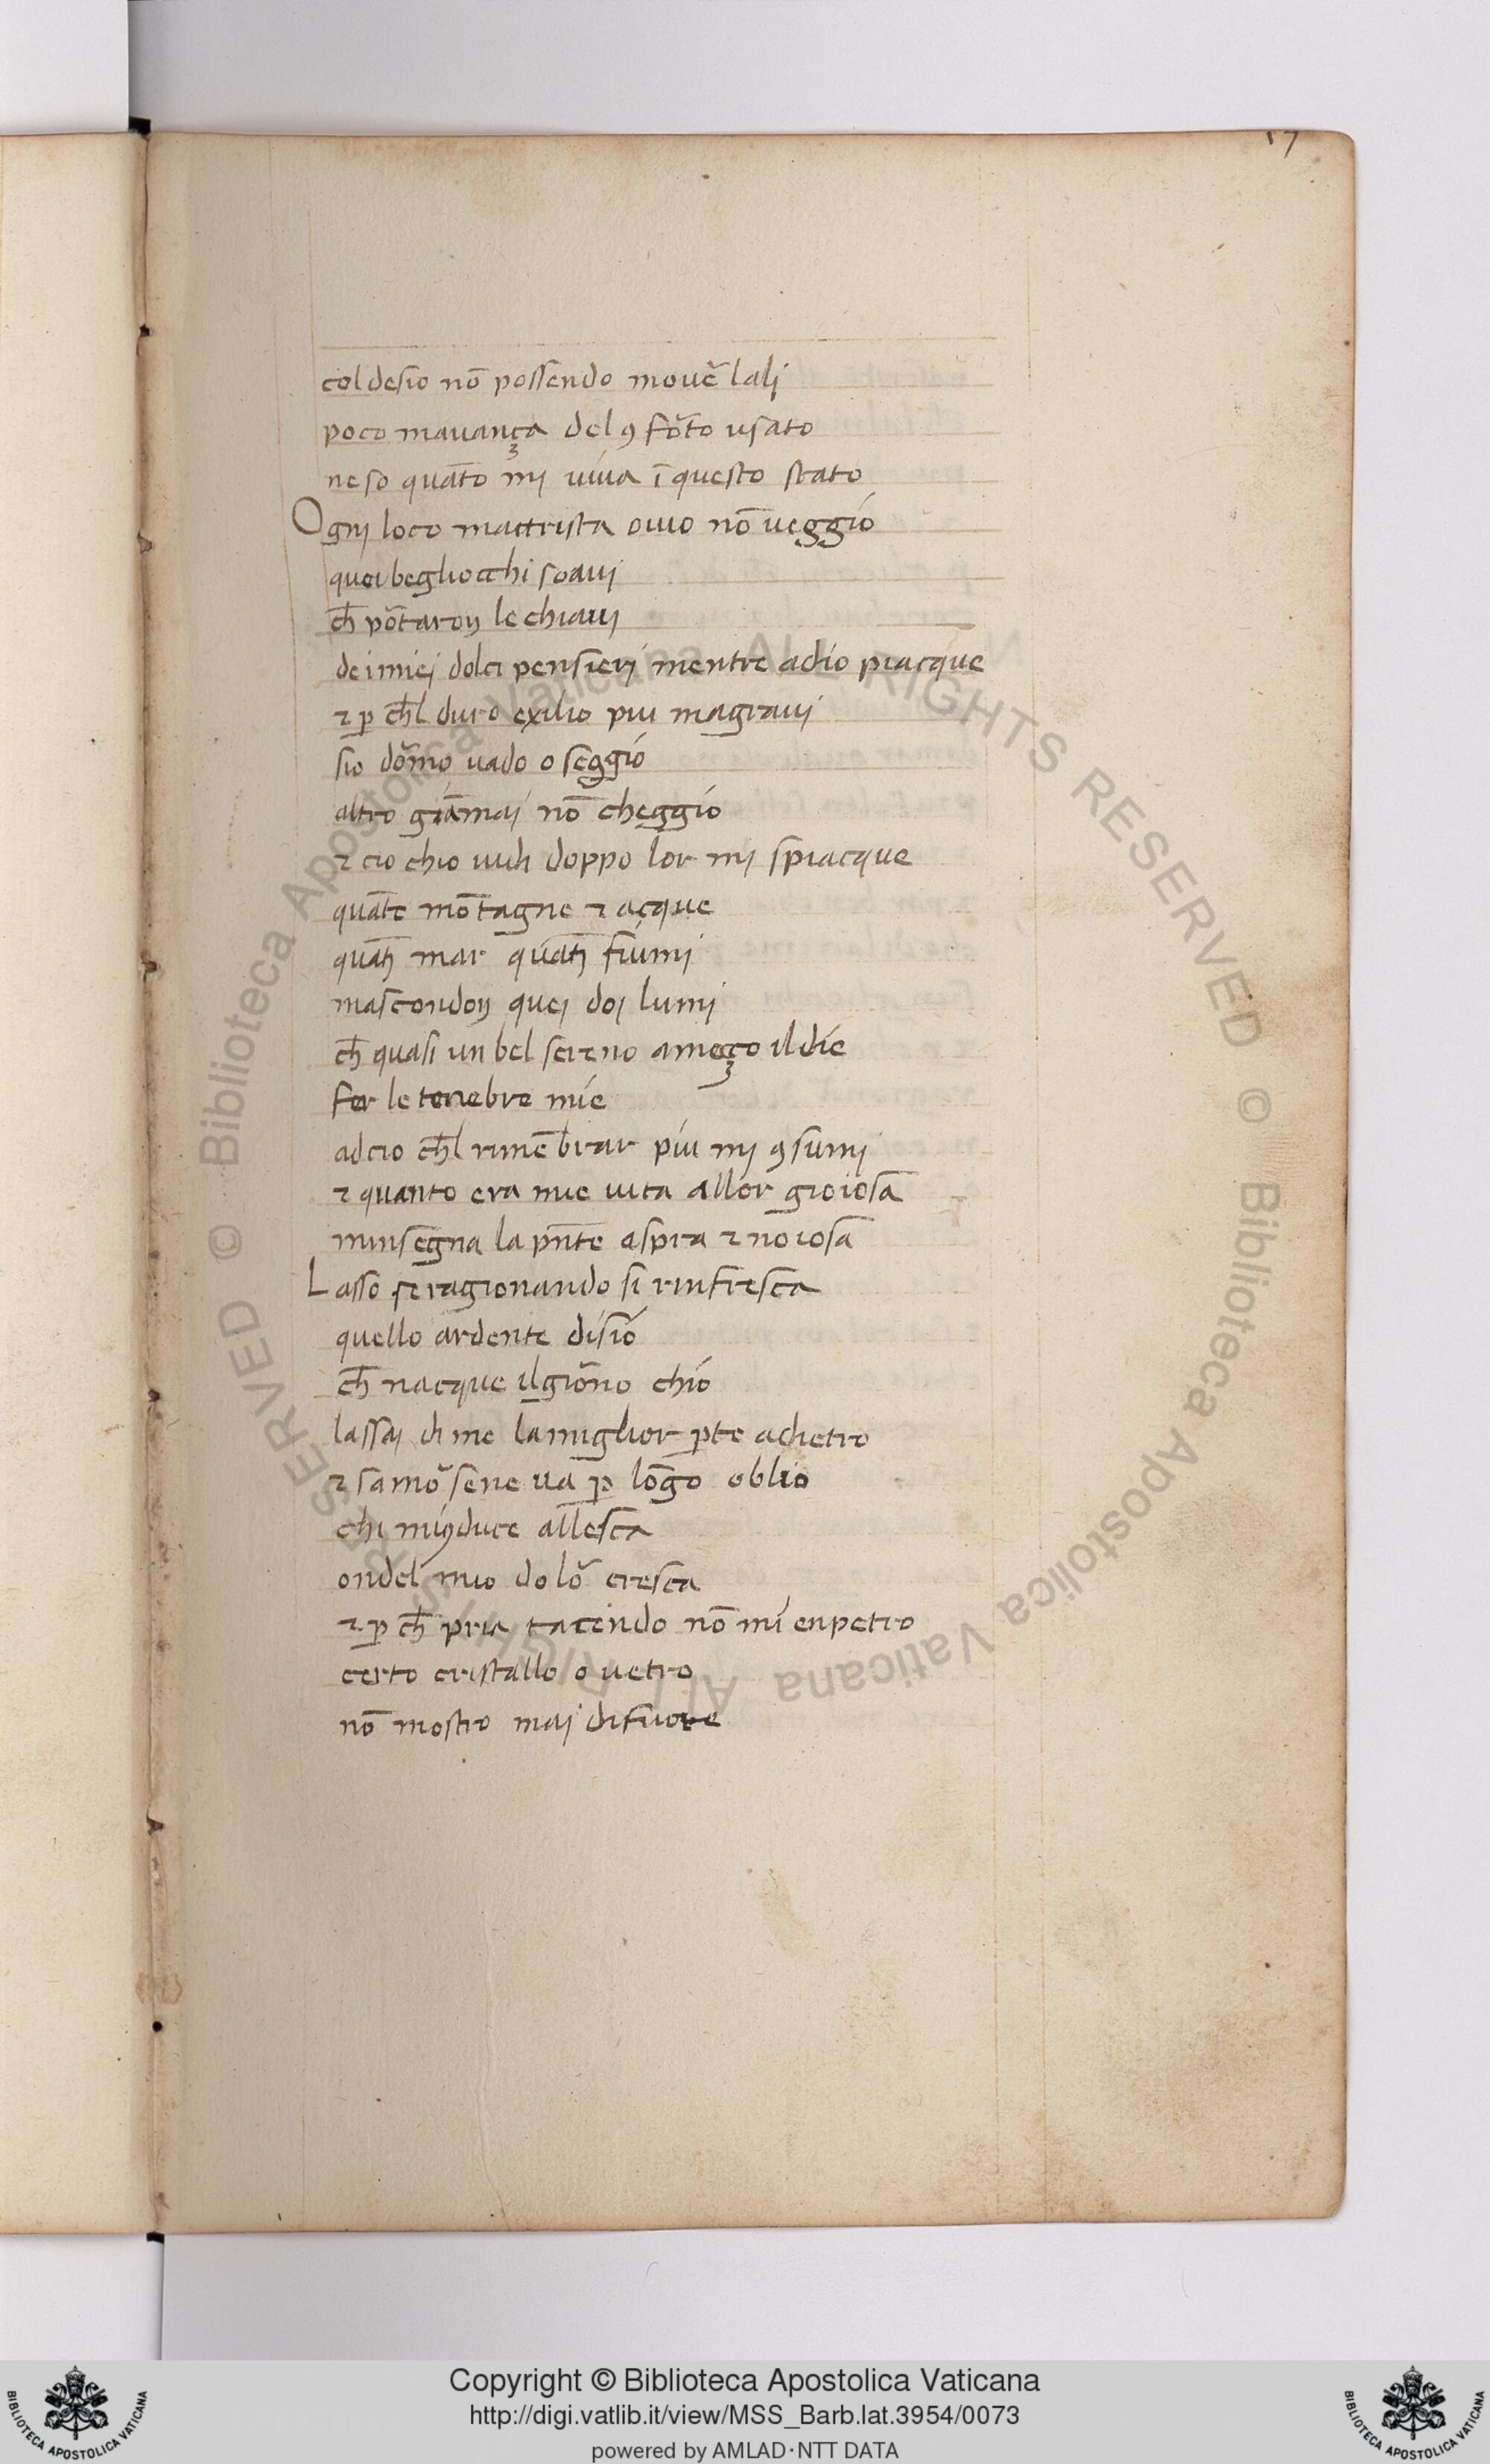 17
col desio nō possendo mouē lalj
poco mauança del ꝯ fōto usato
ne so quāto mj uiua ī questo stato
Ognj loco mattrista ouio nō ueggio
quei begliocchi soauj
cħ pōtaroŋ le chiauj
dei miej dolci pensierj mentre adio piacque
⁊ ꝑ cħl duro exilio piu magrauj
sio dōmo uado o seggio
altro giāmaj nō cheggio
⁊ cio chio uidi doppo lor mj spiacque
quāte mōtagne ⁊ acque
quātj mar quātj fiumj
mascondoŋ quej doj lumj
cħ quasi un bel sereno ameço il die
fer le tenebre mie
adcio cħl rimēbrar piu mj ꝯsumj
⁊ quanto era mie uita allor gioiosa
minsegna la pn̄te aspra ⁊ noiosa
Lasso se ragionando si rinfresca
quello ardente disio
cħ nacque il giōno chio
lassaj di me la miglior ꝑte adietro
⁊ samō sene ua ꝑ lōgo oblio
chi mįꝯduce allesca
ondel mio dolō cresca
⁊ ꝑ cħ pria tacendo nō mi enpetro
certo cristallo o uetro
nō mostro maj di fuore
BIBLIOTECA APOSTOLICA VATICANA
Copyright © Biblioteca Apostolica Vaticana
http://digi.vatlib.it/view/MSS_Barb.lat.3954/0073
powered by AMLAD·NTT DATA
BIBLIOTECA APOSTOLICA VATICANA
© Biblioteca Apostolica Vaticana ALL RIGHTS RESERVED © Biblioteca Apostolica Vaticana ALL RIGHTS RESERVED